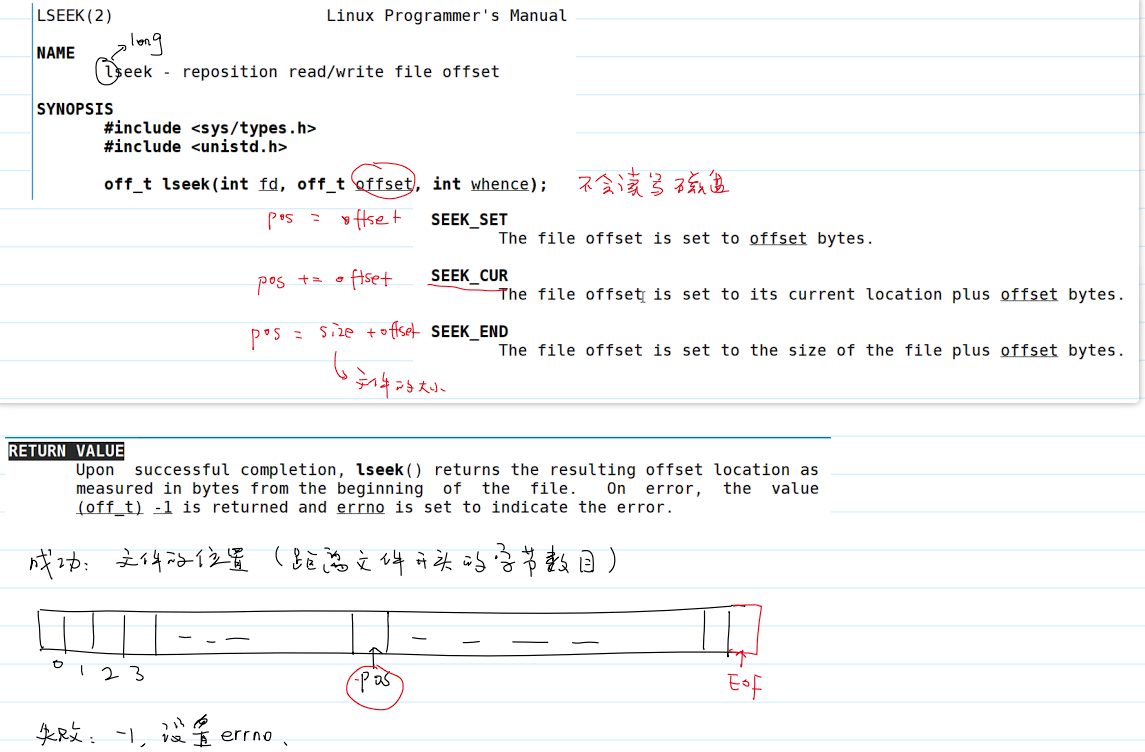 LSEEK(2) Linux Programmer's Manual
long
NAME
lseek - reposition read/write file offset
SYNOPSIS
#include <sys/types.h>
#include <unistd.h>
off_t lseek(int fd, off_t offset, int whence); 不会读写磁盘
pos = offset SEEK_SET
The file offset is set to offset bytes.
pos += offset SEEK_CUR
The file offset is set to its current location plus offset bytes.
pos = size + offset SEEK_END
The file offset is set to the size of the file plus offset bytes.
文件的大小
RETURN VALUE
Upon successful completion, lseek() returns the resulting offset location as
measured in bytes from the beginning of the file. On error, the value
(off_t) -1 is returned and errno is set to indicate the error.
成功: 文件的位置 (距离文件开头的字节数目)
0 1 2 3 pos EOF
失败: -1, 设置 errno.